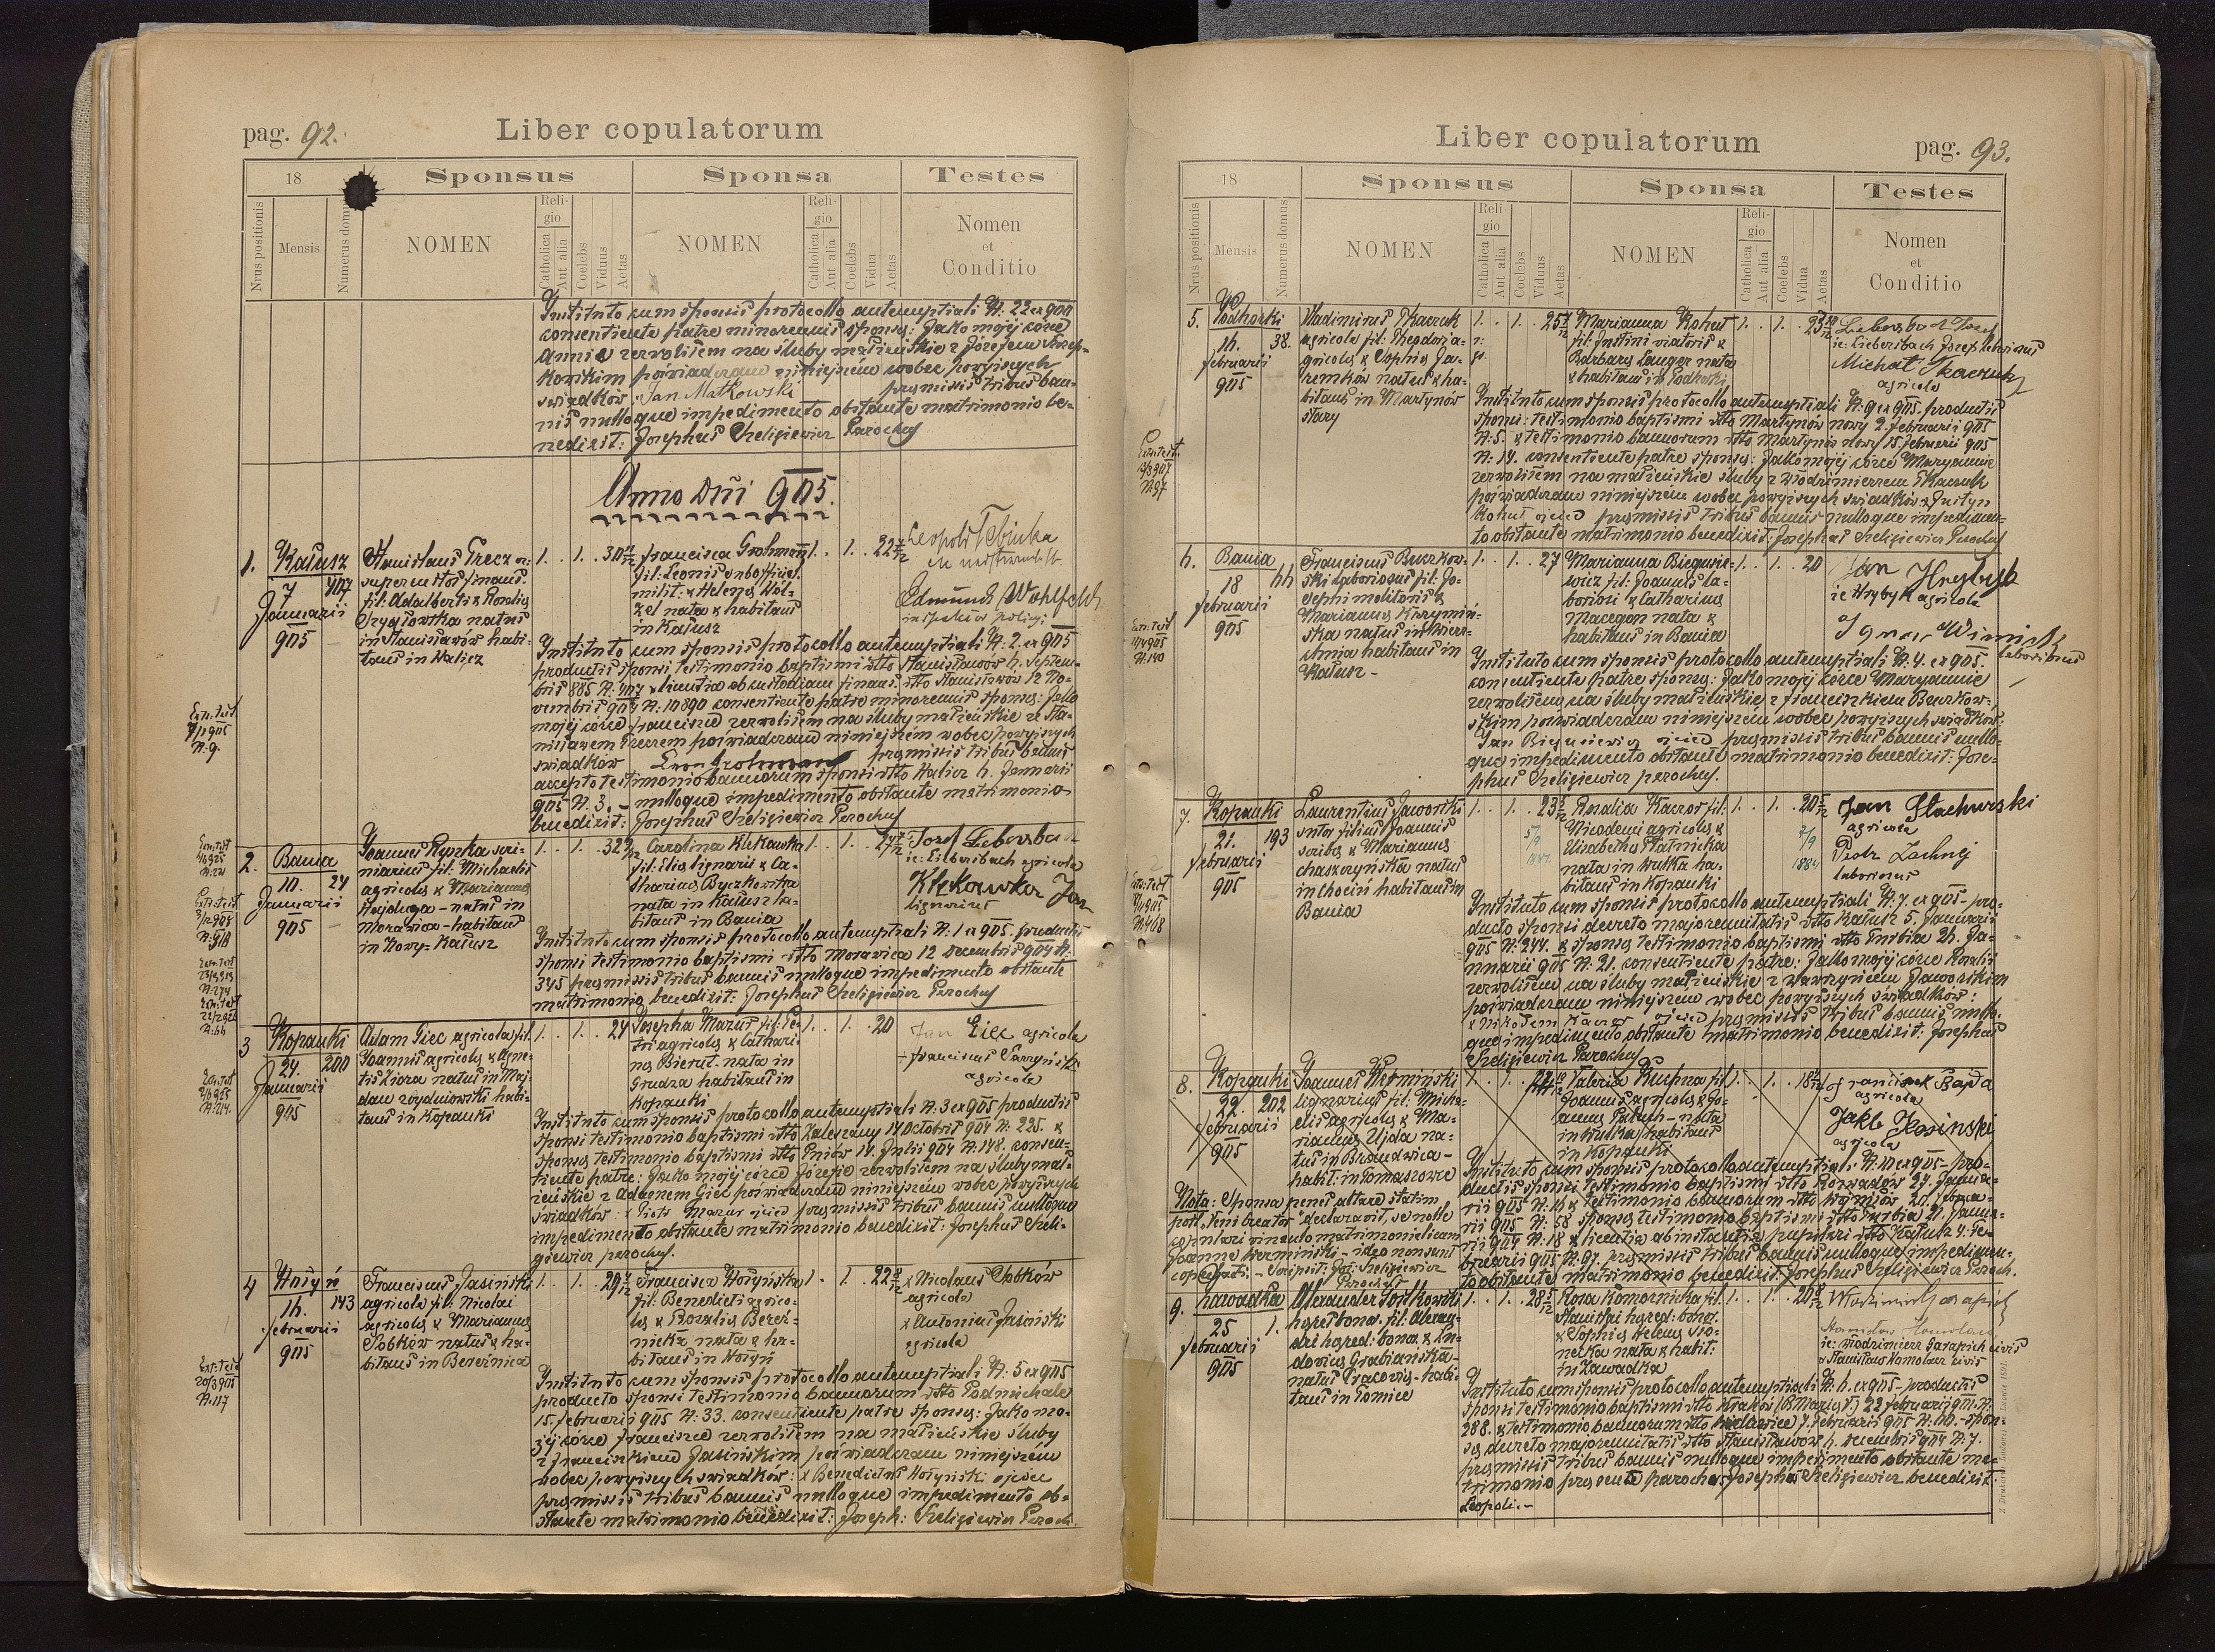 pag. 92.
Liber copulatorum
18
Sponsus
Sponsa
Testes
Nrus positionis
Mensis
Numerus domus
NOMEN
Religio
Catholica
Aut alia
Coelebs
Viduus
Aetas
NOMEN
Religio
Catholica
Aut alia
Coelebs
Vidua
Aetas
Nomen
et
Conditio
Instituto cum sponsis protocollo antenuptiali N: 22 ex 904
consentiente patre minorennis sponsæ: Jako mojéj córce
Annie zezwoliłem na śluby małżeńskie z Józefem
poświadczam niniejszém wobec powyższych
świadków Jan Matkowski præmissis tribus ban-
nis nulloque impedimento obstante matrimonio be-
nedixit: Josephus Szeligiewicz Parochus
Anno Dni 905.
1.
Kałusz
7
407
Januarii
905
Stanislaus Trecz
fil: Adalberti & Rosaliæ
natus
in Stanisławów habi-
tans in Halicz
1. . 1. . 30
Francisca Grohmann
fil: Leonis
milit: & Helenæ Wöl-
zel nata & habitans
in Kałusz
1. . 1. . 22
Leopold
Edmund Wohlfeld
Instituto cum sponsis protocollo antenuptiali N: 2. ex 905
productis sponsi testimonio baptismi dtto Stanisławów 6. Septem-
bris 885 N: 407 & licentia ob custodiam finans. dtto Stanisławów 12 No-
vembris 904 N: 10890 consentiente patre minorennis sponsæ: Jako
mojéj córce Franciszce zezwoliłem na śluby małżeńskie ze Sta-
nisławem Treczem poświadczam niniejszém wobec powyższych
świadków Leon Grohmann præmissis tribus bannis
accepto testimonio bannorum sponsi dtto Halicz 6. Januarii
905 N: 3. – nulloque impedimento obstante matrimonio
benedixit: Josephus Szeligiewicz Parochus
2.
Bania
10.
24
Januarii
905
Joannes Ryszka scri-
niarius fil: Michaelis
agricolæ & Mariannæ
Hajduga – natus in
Morawica – habitans
in Nowy-Kałusz
1. . 1. . 32
Carolina Klekawka
fil: Eliæ lignarii & Ca-
tharinæ Byczkowska
nata in Kałusz ha-
bitans in Bania
1. . 1. . 27
Josef Lebersbach
ie: Liebersbach agricola
Klekawka Jan
lignarius
Instituto cum sponsis protocollo antenuptiali N: 1 ex 905. producto
sponsi testimonio baptismi dtto Morawica 12 Decembris 904 N:
345 præmissis tribus bannis nulloque impedimento obstante
matrimonio benedixit: Josephus Szeligiewicz Parochus
3
Kopanki
24.
200
Januarii
905
Adam Giec agricola fil:
Joannis agricolæ & Agne-
tis Ziora natus in Maj-
dan zbydniowski habi-
tans in Kopanki
1. . 1. . 24
Josepha Mazur fil: Pe-
tri agricolæ & Cathari-
næ Bierut nata in
Grudza habitans in
Kopanki
1. . 1. . 20
Jan Giec agricola
Franciscus
agricola
Instituto cum sponsis protocollo antenuptiali N: 3 ex 905 productis
sponsi testimonio baptismi dtto Zaleszany 14 Octobris 904 N: 225. &
sponsæ testimonio baptismi dtto Pniów 14. Julii 904 N: 148. consen-
tiente patre: Jako mojéj córce Józefie zezwoliłem na śluby mał-
żeńskie z Adamem Giec poświadczam niniejszém wobec powyższych
świadków: x Piotr Mazur ojciec præmissis tribus bannis nulloque
impedimento obstante matrimonio benedixit: Josephus Szeli-
giewicz parochus.
4
Hołyń
16.
143
Februarii
905
Franciscus Jasiński
agricola fil: Nicolai
agricolæ & Mariannæ
Sobków natus & ha-
bitans in Bereźnica
1. . 1. . 29
Francisca Hołyńska
fil: Benedicti agrico-
læ & Rosaliæ Bereź-
nicka nata & ha-
bitans in Hołyń
1. . 1. 22
x Nicolaus Sobków
agricola
x Antonius Jasiński
agricola
Instituto cum sponsis protocollo antenuptiali N: 5 ex 905
producto sponsi testimonio bannorum dtto Podmichale
15. Februarii 905 N: 33. consentiente patre sponsæ: Jako mo-
jéj córce Franciszce zezwoliłem na małżeńskie śluby
z Franciszkiem Jasińskim poświadczam niniejszém
wobec powyższych świadków: x Benedictus Hołyński ojciec
præmissis tribus bannis nulloque impedimento ob-
stante matrimonio benedixit: Joseph: Szeligiewicz Paroch.
Liber copulatorum
pag. 93.
18
Sponsus
Sponsa
Testes
Nrus positionis
Mensis
Numerus domus
NOMEN
Religio
Catholica
Aut alia
Coelebs
Viduus
Aetas
NOMEN
Religio
Catholica
Aut alia
Coelebs
Vidua
Aetas
Nomen
et
Conditio
5.
Podhorki
16.
38.
Februarii
905
Vladimirus Tkaczuk
agricola fil: Theodori a-
gricolæ & Sophiæ Ja-
remków natus & ha-
bitans in Martynów
stary
1. . 1. . 25
Marianna Kohut
fil: Justini viatoris &
Barbaræ Langer nata
& habitans in Podhorki
1. . 1. . 23
ie: Liebersbach Josef
Michał Tkaczuk
agricola
Instituto cum sponsis protocollo antenuptiali N: 9 ex 905. productis
sponsi: testimonio baptismi dtto Martynów nowy 2. Februarii 905
N: 5. & testimonio bannorum dtto Martynów nowy 15. Februarii 905
N: 14. consentiente patre sponsæ: Jako mojéj córce Maryannie
zezwoliłem na małżeńskie śluby z Włodzimierzem Tkaczuk
poświadczam niniejszém wobec powyższych świadków x Justyn
Kohut ojciec præmissis tribus bannis nulloque impedimen-
to obstante matrimonio benedixit: Josephus Szeligiewicz Parochus
6.
Bania
18
66
Februarii
905
Franciscus Buczkow-
ski laboriosus fil: Jo-
sephi molitoris &
Mariannæ Krzymiń-
ska natus in Wierz-
chnia habitans in
Kałusz –
1. . 1. . 27
Marianna Biegusie-
wicz fil: Joannis la-
boriosi & Catharinæ
Macegon nata &
habitans in Bania
1. . 1. . 20
Jan Hrybyk
ie Hrybyk agricola
Ignac Winnicki
laboriosus
Instituto cum sponsis protocollo antenuptiali N: 4. ex 905.
consentiente patre sponsæ: Jako mojéj córce Maryannie
zezwoliłem na śluby małżeńskie z Franciszkiem Buczkow-
skim poświadczam niniejszém wobec powyższych świadków:
Jan Biegusiewicz ojciec præmissis tribus bannis nullo-
que impedimento obstante matrimonio benedixit: Jose-
phus Szeligiewicz parochus.
7.
Kopanki
21.
193
Februarii
905
Laurentius Jaworski
sutor filius Joannis
scribæ & Mariannæ
Chaszczyńska natus
in Chocin habitans in
Bania
1. . 1. . 23
Rosalia Kaczor fil:
Nicodemi agricolæ &
Elisabethæ Płatnicka
nata in Wulka ha-
bitans in Kopanki
1. . 1. . 20
7/9
1884
Jan Stachurski
agricola
Piotr Zachnej
laboriosus
Instituto cum sponsis protocollo antenuptiali N: 7. ex 905 – pro-
ducto sponsi decreto majorennitatis dtto Kałusz 5. Januarii
905 N: 244. & sponsæ testimonio baptismi dtto Turbia 26. Ja-
nuarii 905 N: 21. consentiente patre: Jako mojéj córce Rozalii
zezwoliłem na śluby małżeńskie z Wawrzyńcem Jaworskim
poświadczam niniejszém wobec powyższych świadków:
x Nikodem Kaczor ojciec præmissis tribus bannis nullo-
que impedimento obstante matrimonio benedixit. Josephus
Szeligiewicz Parochus
8.
Kopanki
22.
202
Februarii
905
Joannes Wermiński
lignarius fil: Micha-
elis agricolæ & Ma-
riannæ Ujda na-
tus in Brandwica –
habit: in Tomaszowce
Valeria Kuśpna fil:
Joannis agricolæ & Jo-
annæ Paluch – nata
in Wulka habitans
in Kopanki
1. . 1. . 18
Franciszek Bajda
agricola
Jakb Kosinski
agricola
Instituto cum sponsis protocollo antenuptiali N: 10 ex 905 – pro-
ductis sponsi testimonio baptismi dtto Rozwadów 24. Janua-
rii 905 N: 16 & testimonio bannorum dtto Wojniłów 20. Februa-
rii 905 N: 58 sponsæ testimonio baptismi dtto Turbia 21. Janua-
rii 904 N: 18 & licentia ab instantia pupillari dtto Kałusz 4. Fe-
bruarii 905 N: 97. præmissis tribus bannis nulloque impedimen-
to obstante matrimonio benedixit: Josephus Szeligiewicz Paroch.
Nota: Sponsa penes altare statim
post „Veni creator" declaravit, se nolle
copulari vinculo matrimoniali cum
Joanne Wermiński – ideo non sunt
copulati. – Scripsit: Jos: Szeligiewicz
Parochus
9.
Zawadka
25
1.
Februarii
905
Alexander Sośkowski
hæres bonor. fil: Alexan-
dri hæred: bonor. & Lu-
dovicæ Grabiańska –
natus Cracoviæ – habi-
tans in Łomice
1. . 1. . 28
Rosa Komornicka fil:
Stanislai hæred: bonor.
& Sophiæ Helenæ
nata & habit:
in Zawadka
1. . 1. . 20
ie: Włodzimierz Garapich civis
& Stanisław Homolacz civis
Instituto cum sponsis protocollo antenuptiali N: 6. ex 905 – productis
sponsi testimonio baptismi dtto Kraków (B. Mariæ V.) 22 Februarii 905 N:
288. & testimonio bannorum dtto 7. Februarii 905 N: 66. – spon-
sæ decreto majorennitatis dtto Stanisławów 6. Decembris 904 N: 7.
præmissis tribus bannis nulloque impedimento obstante ma-
trimonio præsente parocho: Josepho Szeligiewicz benedixit:
Leopoli. –